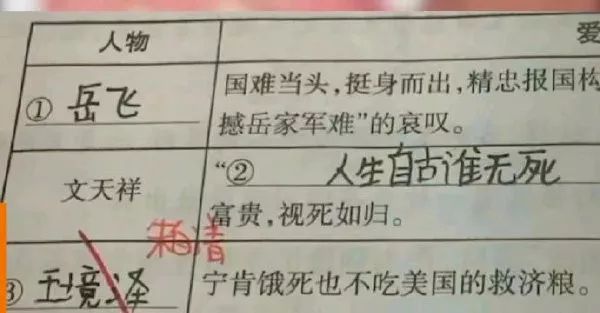 人物
爱
① 岳飞
国难当头，挺身而出，精忠报国构
撼岳家军难”的哀叹。
文天祥
“② 人生自古谁无死
富贵，视死如归。
朱自清
③ 王境泽
宁肯饿死也不吃美国的救济粮。